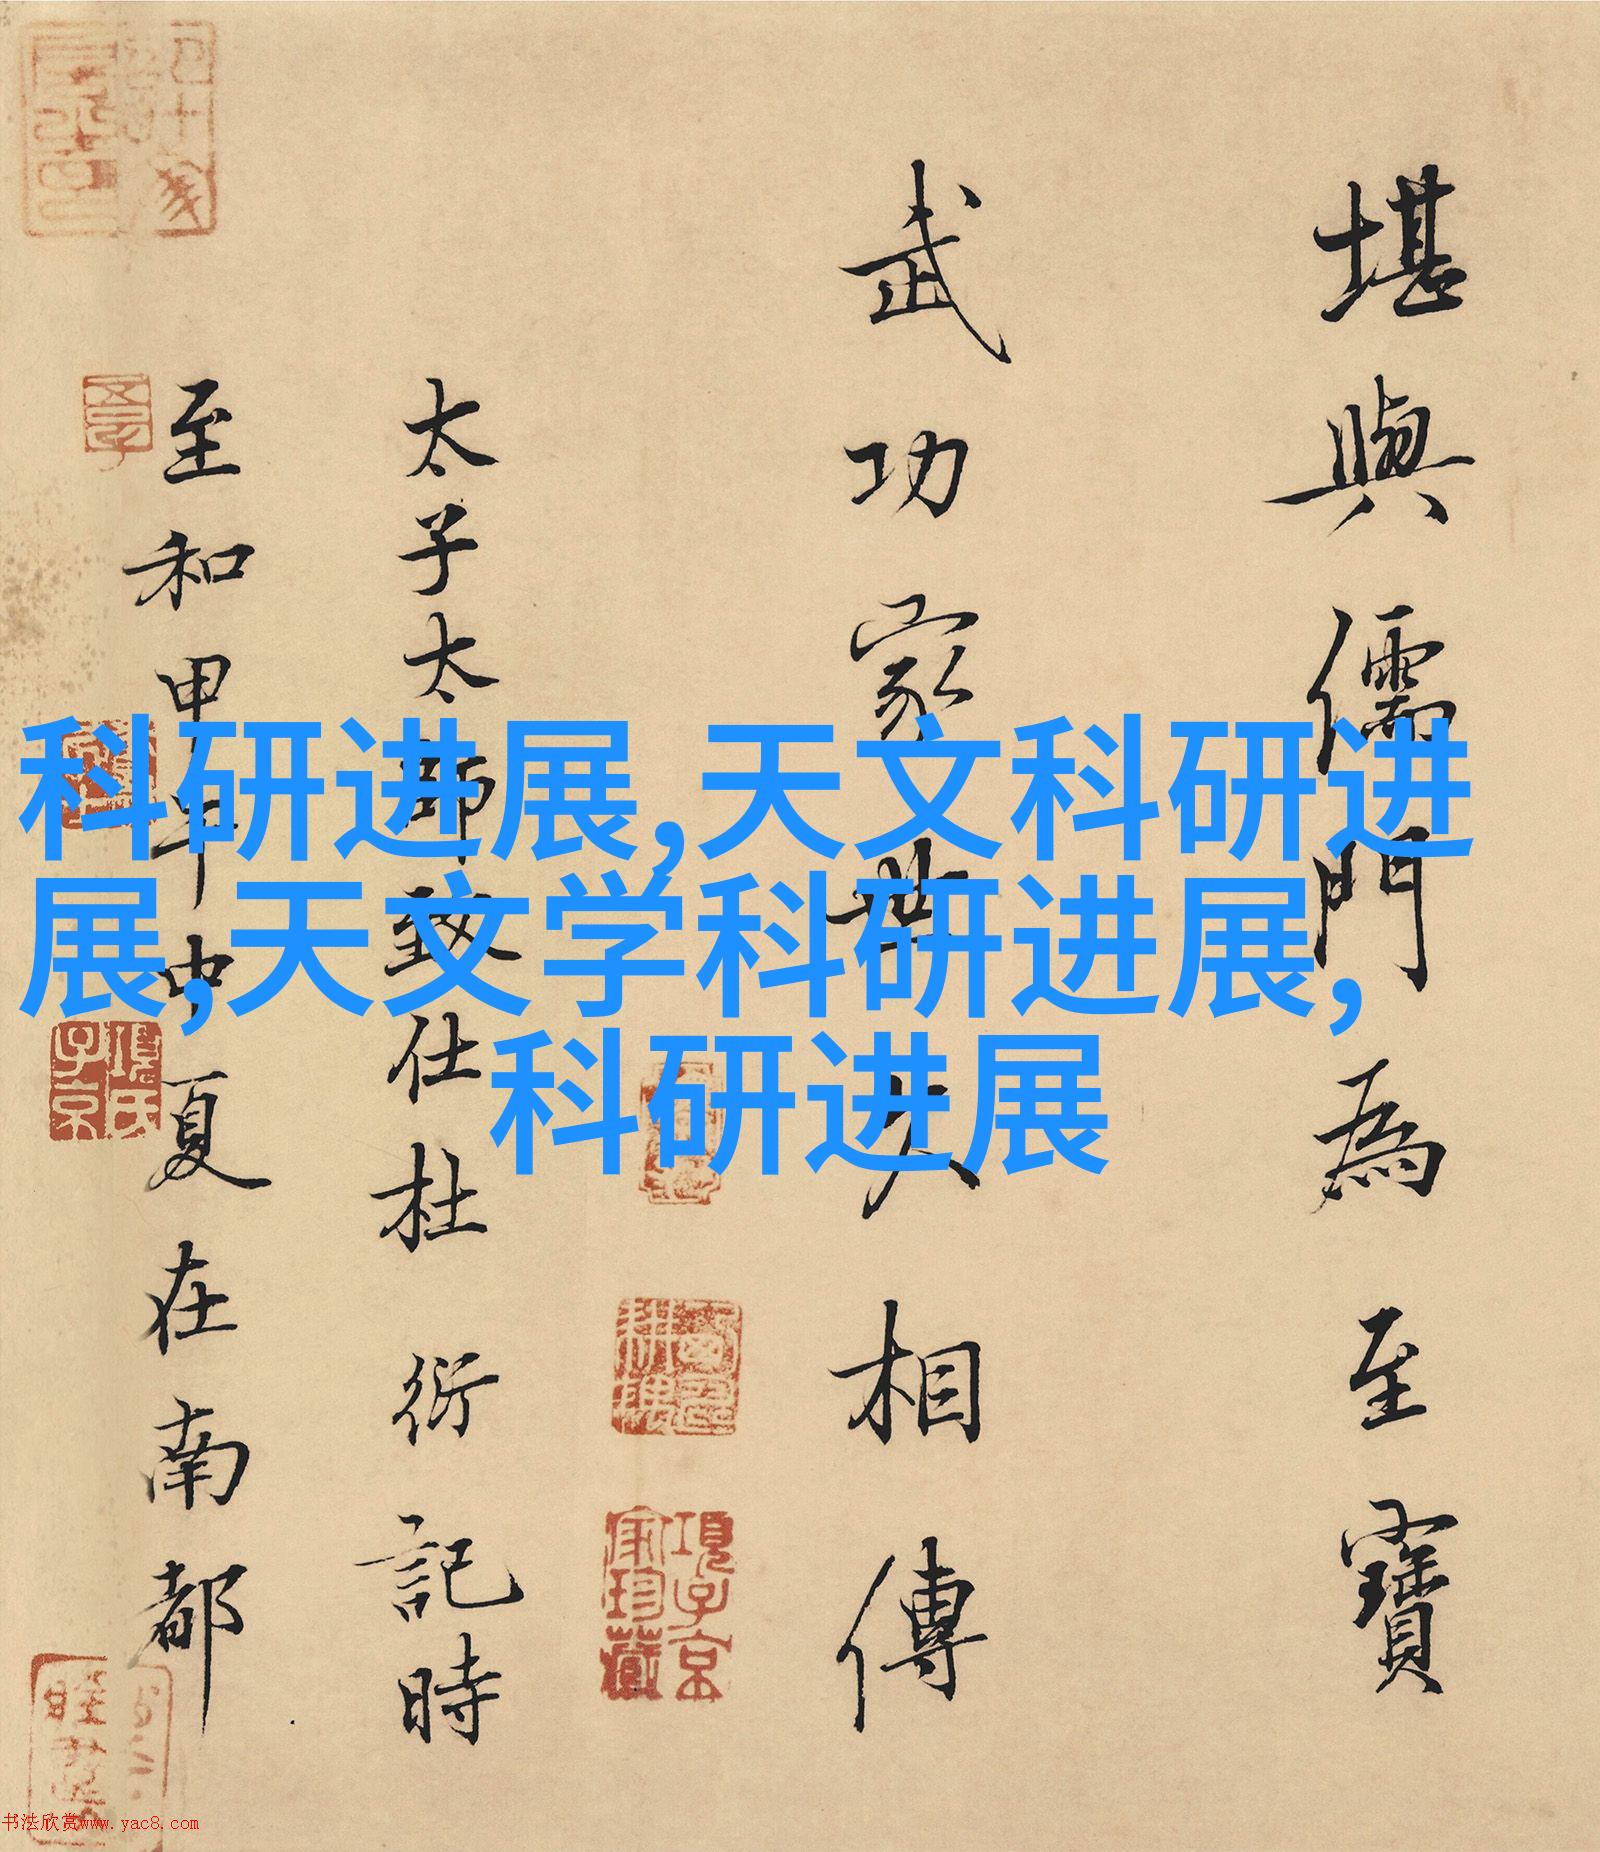 堪輿儒門為至寶
武功家世久相傳
太子太師致仕杜衍記時
至和甲午中夏在南都
科研进展,天文科研进
展,天文学科研进展,
科研进展
項子京家珍藏
項氏子京
书法欣赏www.yac8.com